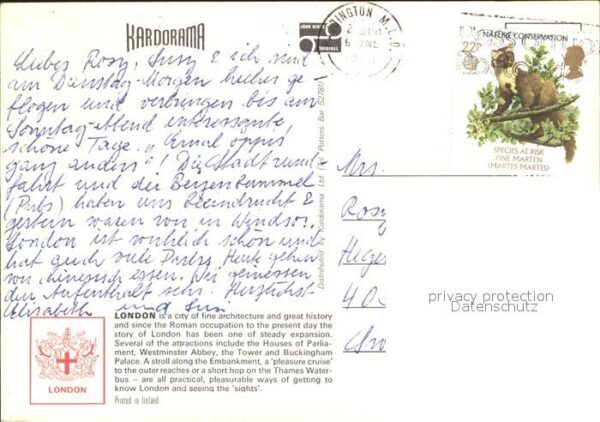 KARDORAMA
JOHN HINDE
ORIGINAL
PADDINGTON
NATURE CONSERVATION
22P
SPECIES AT RISK
PINE MARTEN
(MARTES MARTES)
Liebes Rosy, Susy & ich sind
am Dienstag-Morgen hieher ge-
flogen und verbringen bis am
Sonntag-Abend interessante,
schöne Tage. "Emal öppis
ganz anders"! Die Stadtrund-
fahrt und der Beizenbummel
(Pubs) haben uns beeindruckt &
gestern waren wir in Windsor.
London ist wirklich schön und
hat auch viele Parks. Heute gehen
wir chinesisch essen. Wir geniessen
den Aufenthalt sehr. Herzlichst
Elisabeth und Susy
Distributed by Kardorama Ltd Potters Bar
Mrs.
Rosy
40
privacy protection
Datenschutz
LONDON is a city of fine architecture and great history
and since the Roman occupation to the present day the
story of London has been one of steady expansion.
Several of the attractions include the Houses of Parlia-
ment, Westminster Abbey, the Tower and Buckingham
Palace. A stroll along the Embankment, a 'pleasure cruise'
to the outer reaches or a short hop on the Thames Water-
bus – are all practical, pleasurable ways of getting to
know London and seeing the 'sights'.
Printed in Ireland
LONDON